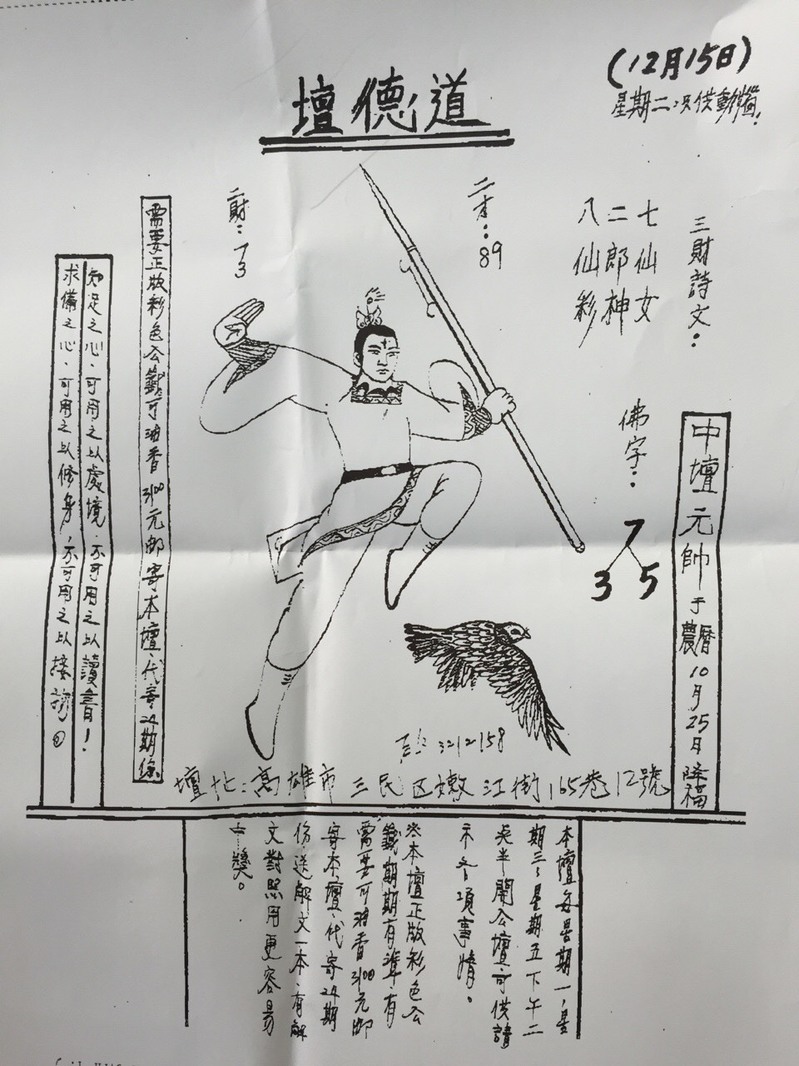 (12月15日)
星期二
道德壇
三財詩文：
七仙女
二郎神
八仙彩
二才：89
二財：73
佛字：
7
3 5
中壇元帥于農曆10月25日降福
需要正版彩色公籤可油香3100元邮寄本壇、代寄24期
知足之心、可用之以處境、不可用之以讀書！
求備之心、可用之以修身、不可用之以接
3212158
壇址：高雄市三民区嫩江街165巷12號
本壇每星期一、星
期三、星期五下午二
開公壇可供請
示各項事情。
※本壇正版彩色公
籤期期有準、有
需要可油香3100元邮
寄本壇、代寄24期
份送解文一本、有解
文對照用更容易
中獎。